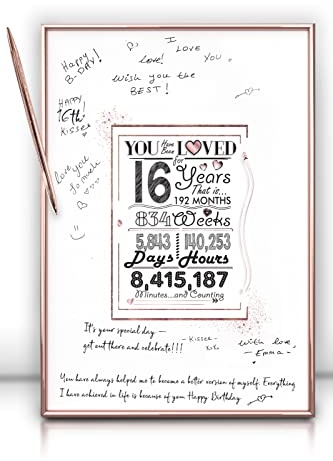 Happy
B-DAY!
I
LOVE
YOU
love!
Wish you the
BEST!
HAPPY
16th!
Kisses
Love you
so much
YOU Have Been LOVED
for
16 Years
That is...
192 MONTHS
834 Weeks
5,843 140,253
Days Hours
8,415,187
Minutes...and Counting
It's your special day –
get out there and celebrate!!!
- Kisses
with love,
- Emma -
You have always helped me to become a better version of myself. Everything
I have achieved in life is because of you Happy Birthday